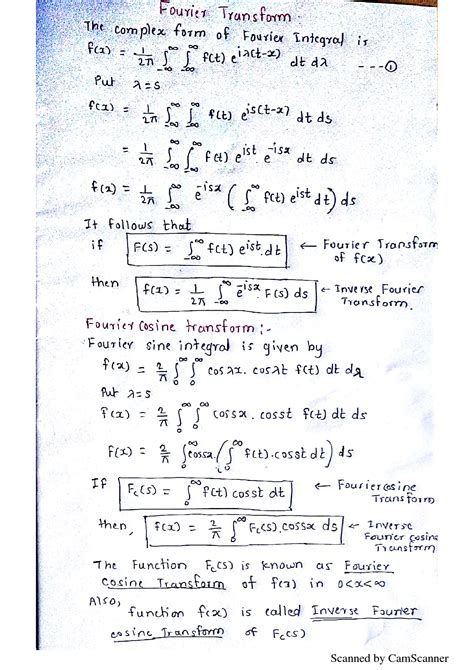 Fourier Transform.
The complex form of Fourier Integral is
f(x) = 1/2π ∫_{-∞}^{∞} ∫_{-∞}^{∞} f(t) e^{iλ(t-x)} dt dλ ---①
Put λ=s
f(x) = 1/2π ∫_{-∞}^{∞} ∫_{-∞}^{∞} f(t) e^{is(t-x)} dt ds
= 1/2π ∫_{-∞}^{∞} ∫_{-∞}^{∞} f(t) e^{ist} . e^{-isx} dt ds
f(x) = 1/2π ∫_{-∞}^{∞} e^{-isx} ( ∫_{-∞}^{∞} f(t) e^{ist} dt ) ds
It follows that
if F(s) = ∫_{-∞}^{∞} f(t) e^{ist}.dt ← Fourier Transform
of f(x)
then f(x) = 1/2π ∫_{-∞}^{∞} e^{-isx}. F(s) ds ← Inverse Fourier
Transform.
Fourier cosine transform :-
Fourier sine integral is given by
f(x) = 2/π ∫_0^∞ ∫_0^∞ cosλx. cosλt f(t) dt dλ
Put λ=s
f(x) = 2/π ∫_0^∞ ∫_0^∞ cossx. cosst f(t) dt ds
f(x) = 2/π ∫_0^∞ cossx. ( ∫_0^∞ f(t).cosst dt ) ds
If Fc(s) = ∫_0^∞ f(t) cosst dt ← Fourier cosine
Transform
then, f(x) = 2/π ∫_0^∞ Fc(s).cossx ds ← Inverse
Fourier cosine
Transform
The Function Fc(s) is known as Fourier
Cosine Transform of f(x) in 0<x<∞
Also,
function f(x) is called Inverse Fourier
cosine Transform of Fc(s)
Scanned by CamScanner